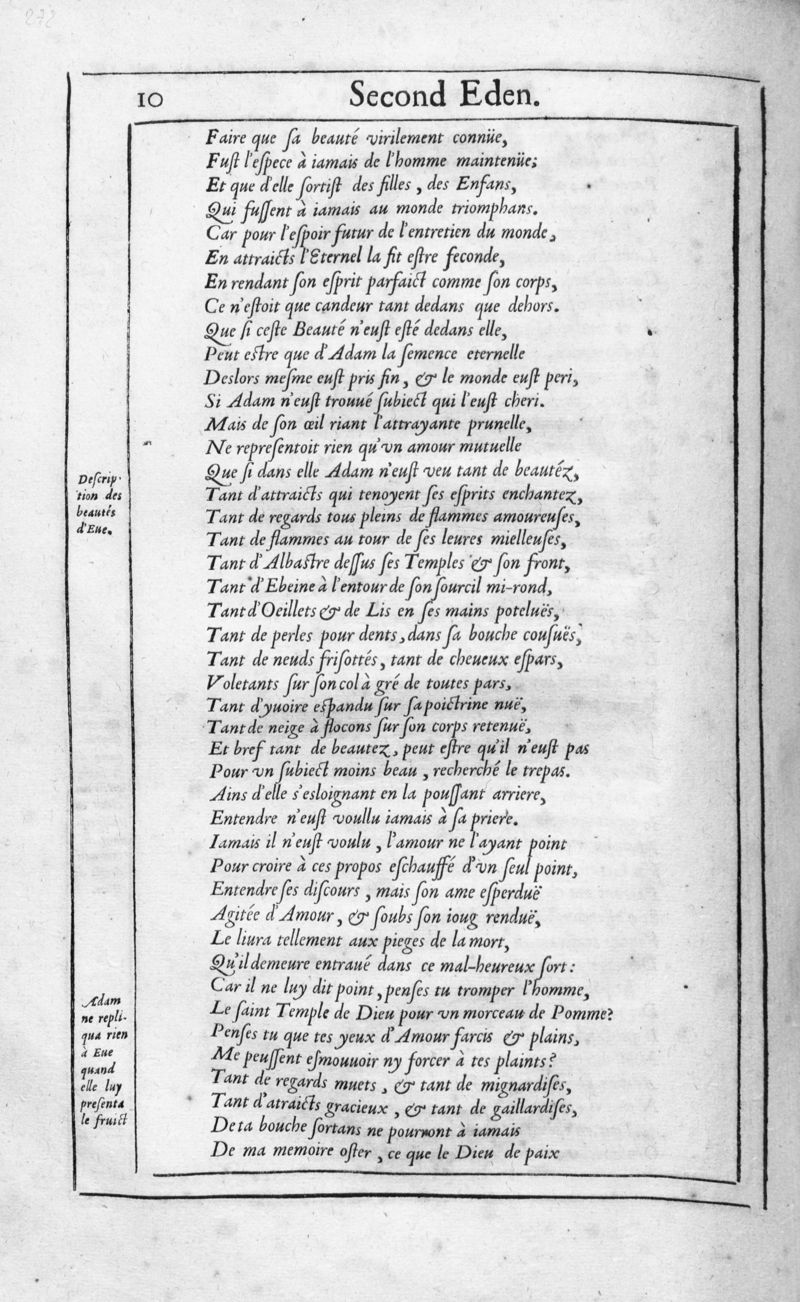 272
10
Second Eden.
Faire que ſa beauté virilement connüe,
Fuſt l'eſpece à iamais de l'homme maintenüe;
Et que d'elle ſortiſt des filles, des Enfans,
Qui fuſſent à iamais au monde triomphans.
Car pour l'eſpoir futur de l'entretien du monde,
En attraicts l'Eternel la fit eſtre feconde,
En rendant ſon eſprit parfaict comme ſon corps,
Ce n'eſtoit que candeur tant dedans que dehors.
Que ſi ceſte Beauté n'euſt eſté dedans elle,
Peut eſtre que d'Adam la ſemence eternelle
Deslors meſme euſt pris fin, & le monde euſt peri,
Si Adam n'euſt trouué ſubiect qui l'euſt cheri.
Mais de ſon œil riant l'attrayante prunelle,
Ne repreſentoit rien qu'vn amour mutuelle
Que ſi dans elle Adam n'euſt veu tant de beautéz,
Tant d'attraicts qui tenoyent ſes eſprits enchantez,
Tant de regards tous pleins de flammes amoureuſes,
Tant de flammes au tour de ſes leures mielleuſes,
Tant d'Albaſtre deſſus ſes Temples & ſon front,
Tant d'Ebeine à l'entour de ſon ſourcil mi-rond,
Tant d'Oeillets & de Lis en ſes mains poteluës,
Tant de perles pour dents, dans ſa bouche couſuës,
Tant de neuds friſottés, tant de cheueux eſpars,
Voletants ſur ſon col à gré de toutes pars,
Tant d'yuoire eſpandu ſur ſa poictrine nuë,
Tant de neige à flocons ſur ſon corps retenuë,
Et bref tant de beautez, peut eſtre qu'il n'euſt pas
Pour vn ſubiect moins beau, recherché le trepas.
Ains d'elle s'esloignant en la pouſſant arriere,
Entendre n'euſt voullu iamais à ſa priere.
Iamais il n'euſt voulu, l'amour ne l'ayant point
Pour croire à ces propos eſchauffé d'vn ſeul point,
Entendre ſes diſcours, mais ſon ame eſperduë
Agitée d'Amour, & ſoubs ſon ioug renduë,
Le liura tellement aux pieges de la mort,
Qu'il demeure entraué dans ce mal-heureux ſort:
Car il ne luy dit point, penſes tu tromper l'homme,
Le ſaint Temple de Dieu pour vn morceau de Pomme?
Penſes tu que tes yeux d'Amour farcis & plains,
Me peuſſent eſmouuoir ny forcer à tes plaints?
Tant de regards muets, & tant de mignardiſes,
Tant d'atraicts gracieux, & tant de gaillardiſes,
De ta bouche ſortans ne pourront à iamais
De ma memoire oſter, ce que le Dieu de paix
Deſcrip-
tion des
beautés
d'Eue.
Adam
ne repli-
qua rien
à Eue
quand
elle luy
preſenta
le fruict